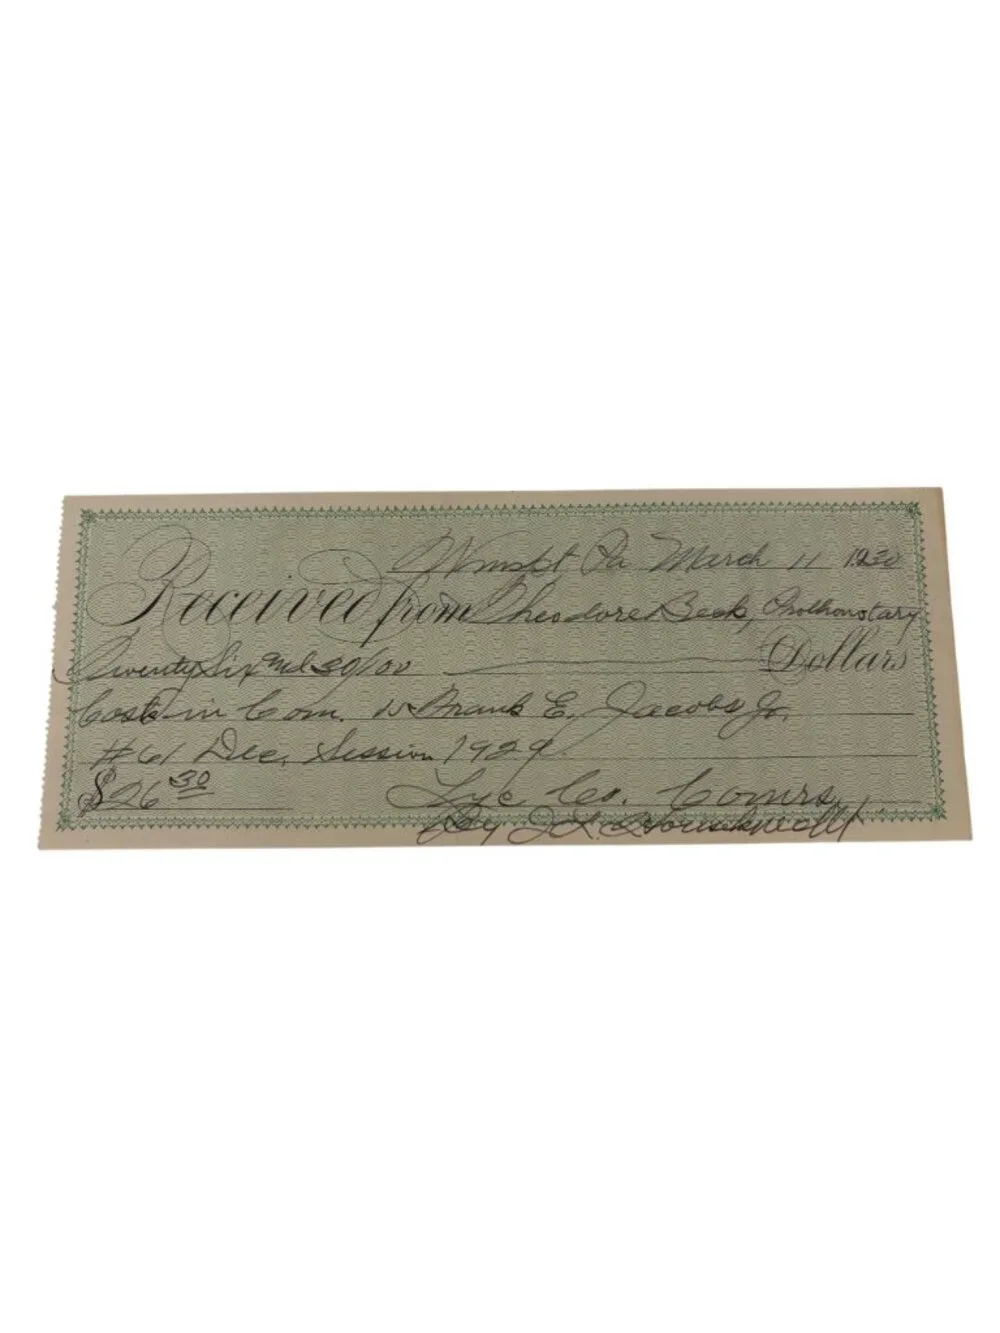 Wmspt Pa March 11 1930
Received from Theodore Beck, Prothonotary
Twenty Six and 30/100 Dollars
Costs in Com. vs Frank E. Jacobs Jr.
#61 Dec. Session 1929
$26 30 Lyc Co. Comrs
By J. Houseknecht